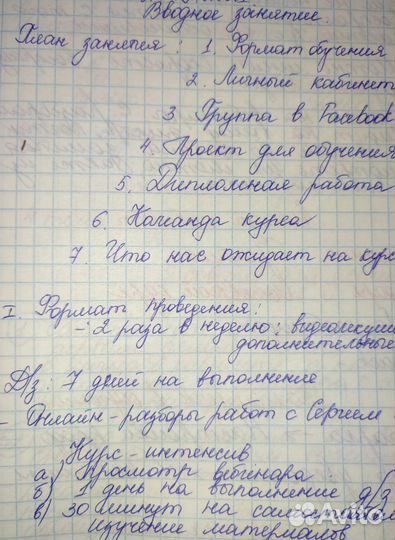 Вводное занятие.
План занятия: 1. Формат обучения
2. Личный кабинет
3. Группа в Facebook
4. Проект для обучения
5. Дипломная работа
6. Команда курса
7. Что нас ожидает на курс
I. Формат проведения:
- 2 раза в неделю: видеолекции
дополнительные
Д/з: 7 дней на выполнение
- Онлайн-разборы работ с Сергеем
Курс-интенсив
а) Просмотр вебинара:
б) 1 день на выполнение д/з
в) 30 минут на
изучение материалов
Avito